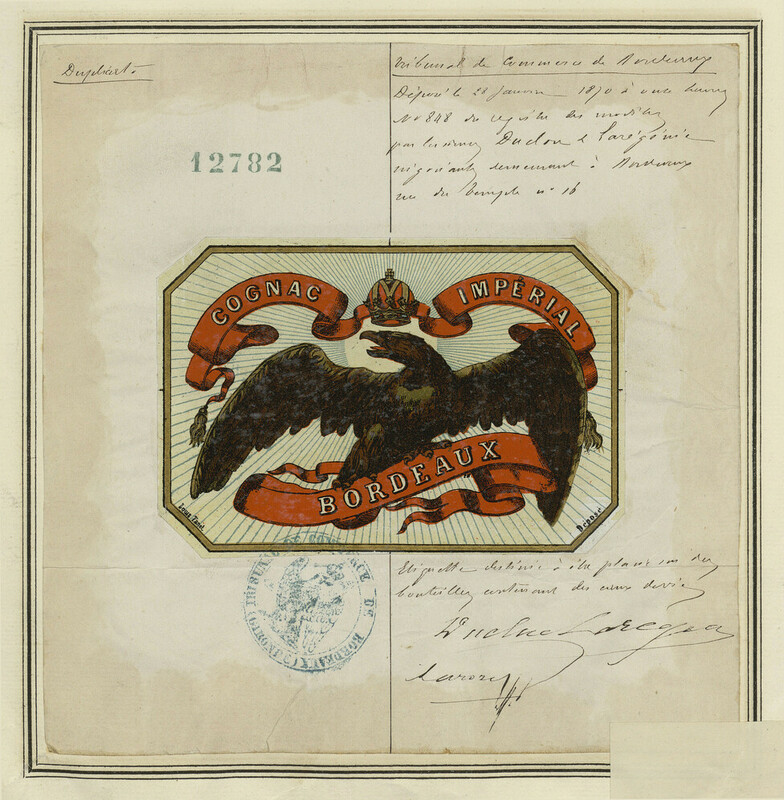 Duplicata
Tribunal de Commerce de Bordeaux
Déposé le 28 Janvier 1870 à onze heures
No 848 du registre des modèles
par les sieurs Duclou & Larégénie
négociants demeurant à Bordeaux
rue du Temple no 16
12782
COGNAC IMPÉRIAL
BORDEAUX
Déposé.
TRIBUNAL DE COMMERCE DE BORDEAUX (GIRONDE)
Etiquette destinée à être placée sur des
bouteilles contenant des eaux de vie